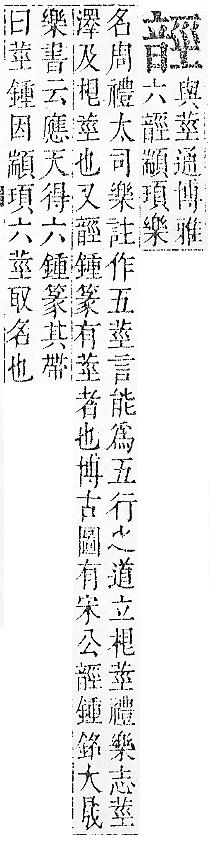 䪫
與莖通博雅
六䪫顓頊樂
名周禮太司樂註作五莖言能爲五行之道立根莖禮樂志莖
澤及根莖也又䪫鍾篆有莖者也博古圖有宋公䪫鍾銘大晟
樂書云應天得六鍾篆其帶
曰莖鍾因顓頊六莖取名也